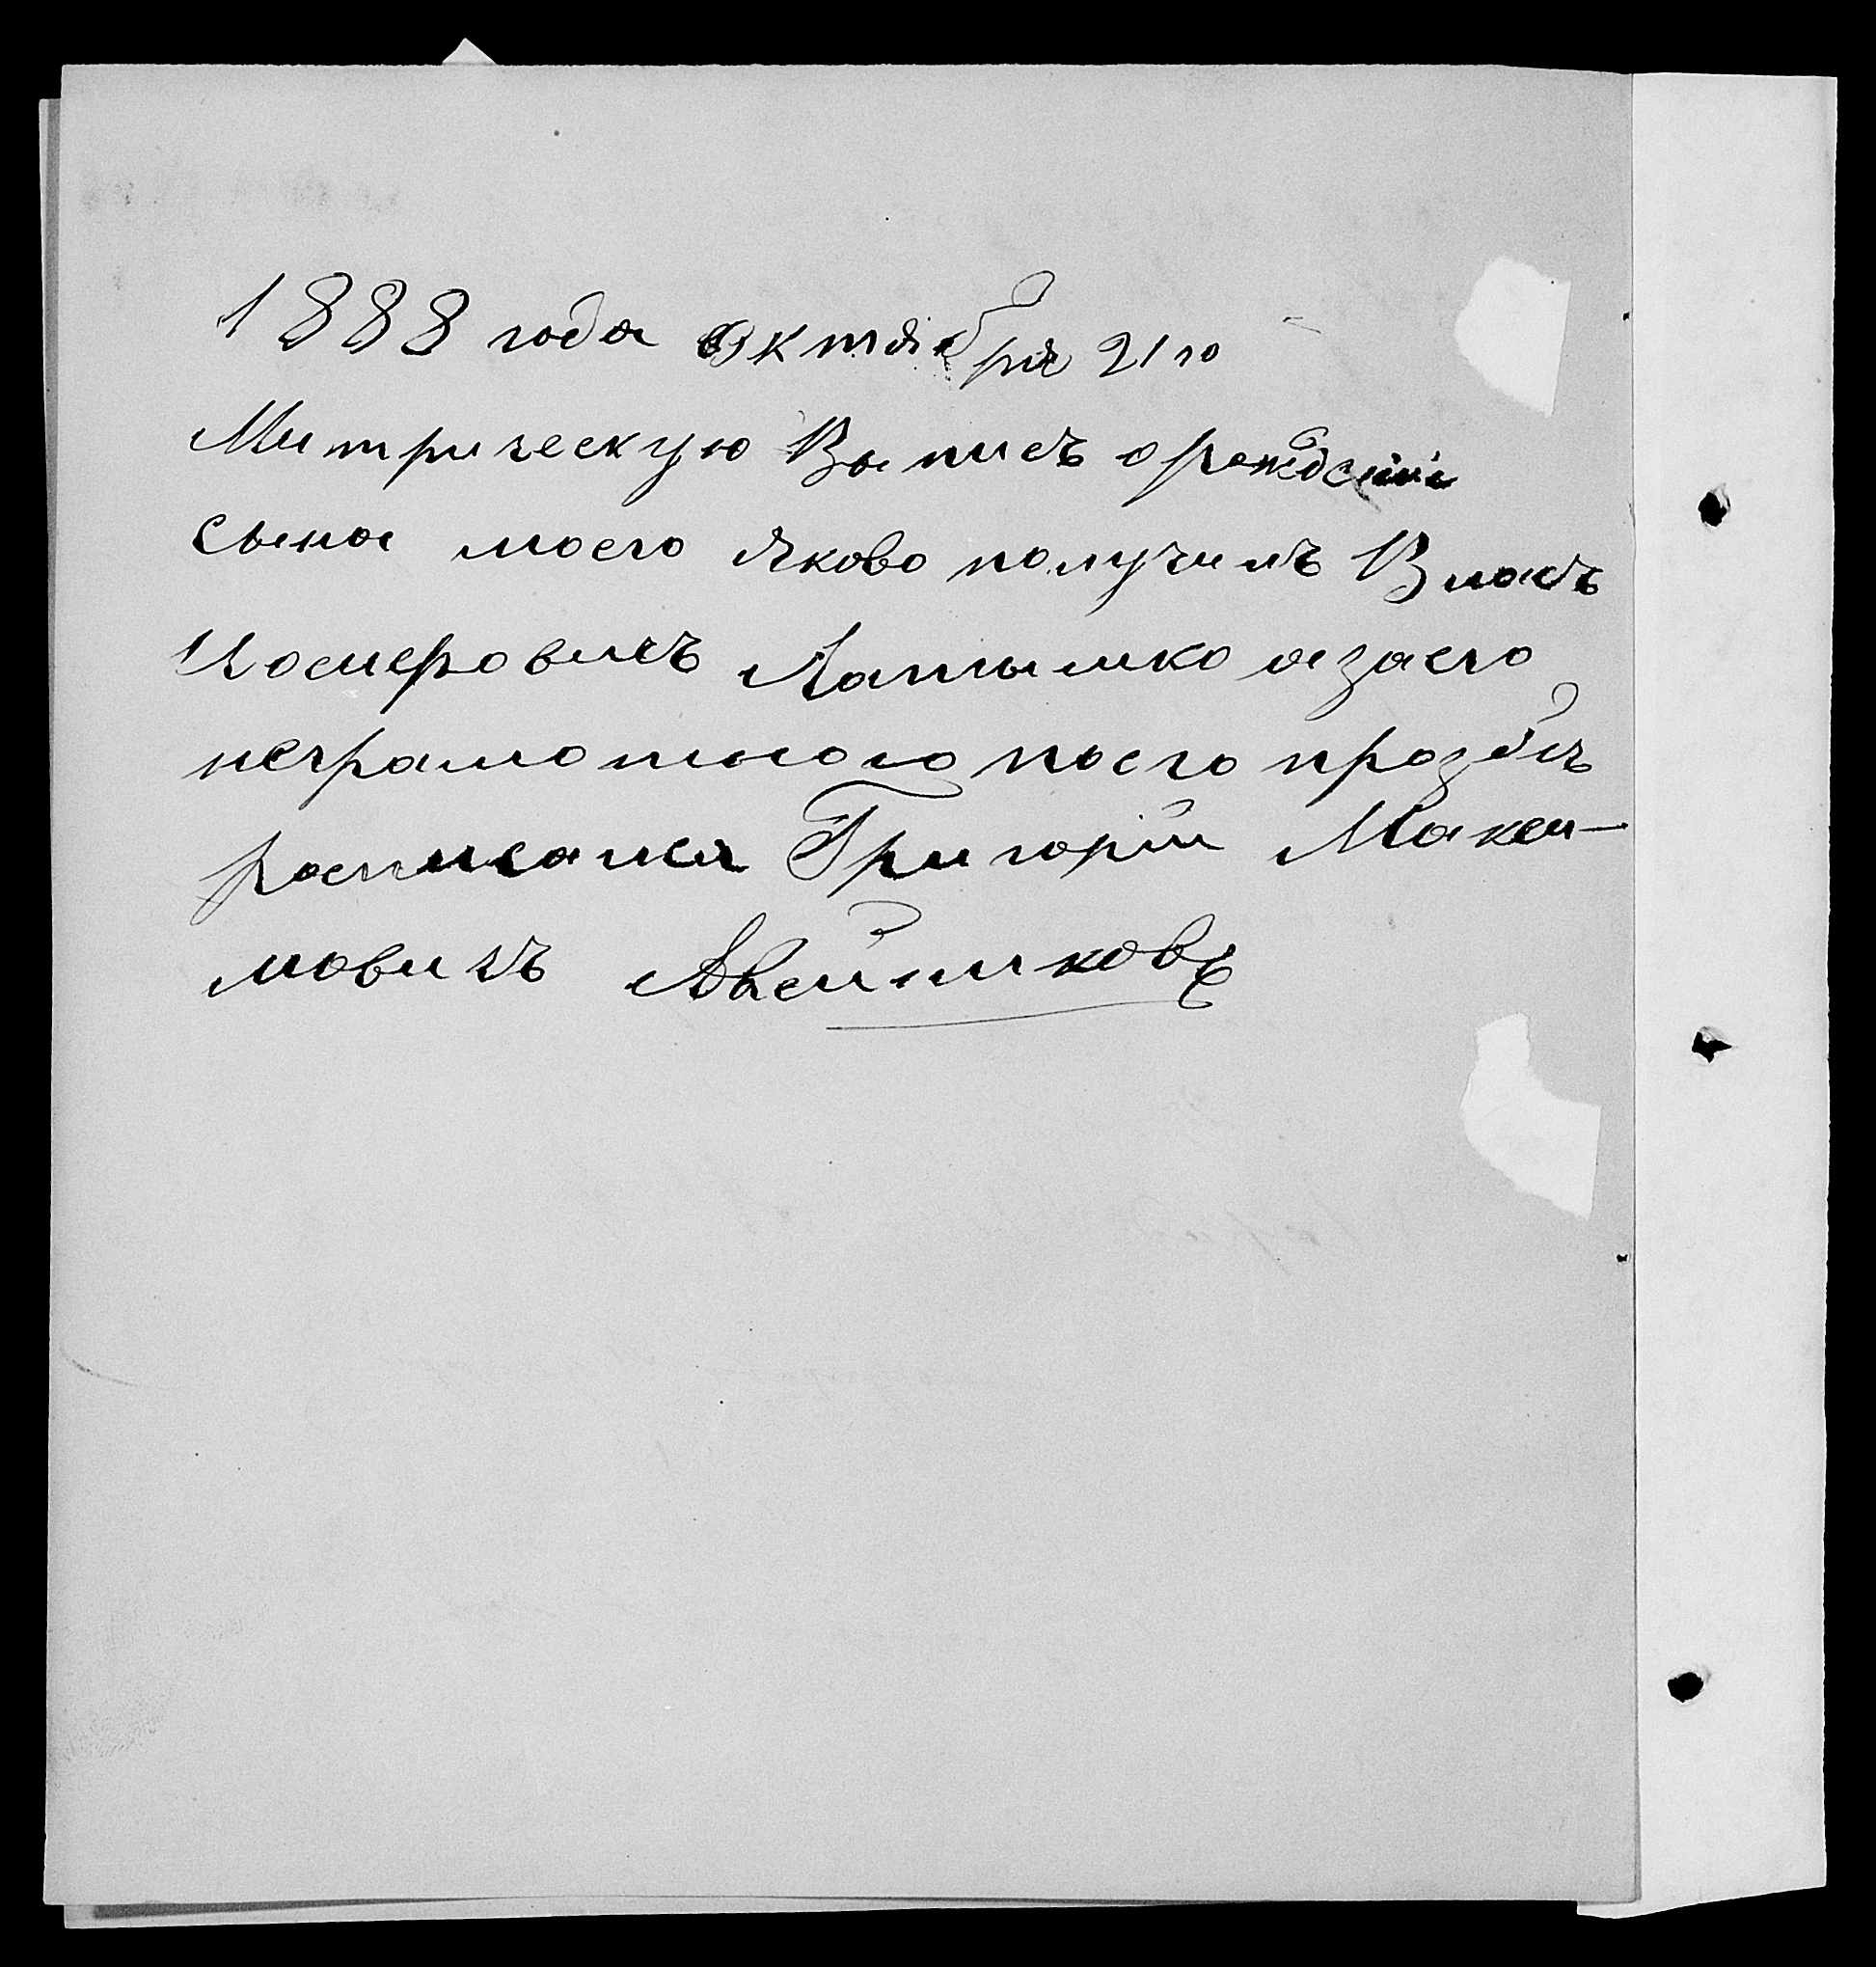 1888 года октября 21 го
Митрическую Выпись о рождении
сына моего Якова получилъ Власъ
Латышко а за его
неграмотного по его прозбѣ
росписался Григорий Макси-
мовичъ